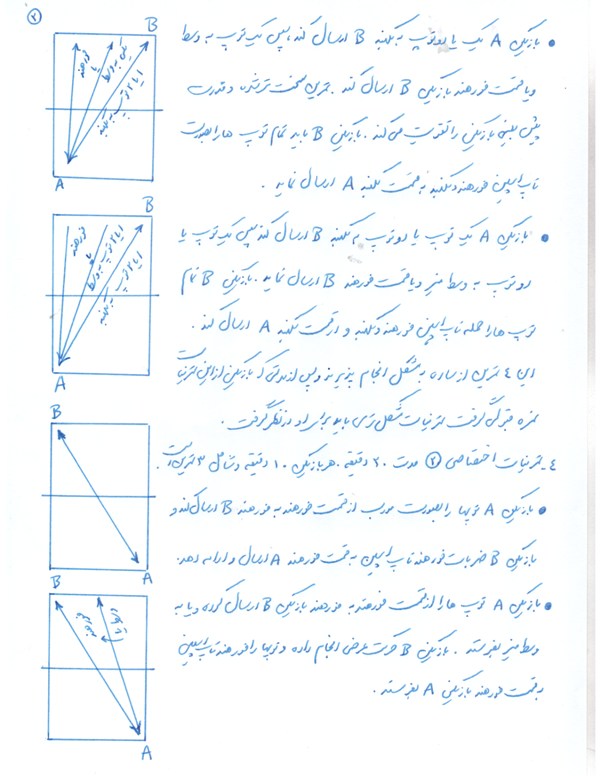 ۲
• بازیکن A یک یا دو توپ به بکهند B ارسال کند، سپس یک توپ به وسط
و یا سمت فورهند بازیکن B ارسال کند. تمرین سخت تر شده و قدرت
پیش بینی بازیکن را تقویت می‌کند. بازیکن B باید تمام توپ ها را بصورت
تاپ اسپین فورهند و بکهند به سمت بکهند A ارسال نماید.
• بازیکن A یک توپ یا دو توپ به بکهند B ارسال کند سپس یک توپ یا
دو توپ به وسط میز و یا سمت فورهند B ارسال نماید. بازیکن B تمام
توپ ها را حمله تاپ اسپین فورهند و بکهند و از سمت بکهند A ارسال کند.
این ٤ تمرین از ساده به مشکل انجام پذیرند و پس از مدتی که بازیکن از این تمرینات
نمره قبولی گرفت تمرینات مشکل تری باید برای او در نظر گرفت.
٤- تمرینات اختصاصی ۲ مدت ۲۰ دقیقه. هر بازیکن ۱۰ دقیقه و شامل ۳ تمرین است.
• بازیکن A توپها را بصورت مورب از سمت فورهند به فورهند B ارسال کند و
بازیکن B ضربات فورهند تاپ اسپین به سمت فورهند A ارسال و ادامه دهد.
• بازیکن A توپ ها را از سمت فورهند به فورهند بازیکن B ارسال کرده و یا به
وسط میز بفرستد. بازیکن B حرکت عرضی انجام داده و توپها را فورهند تاپ اسپین
به سمت فورهند بازیکن A بفرستد.
B
فورهند
یا
یکی به وسط
۱ یا ۲ توپ به بکهند
A
B
فورهند
یا
۱ یا ۲ توپ به وسط
۱ یا ۲ توپ به بکهند
A
B
A
B
A